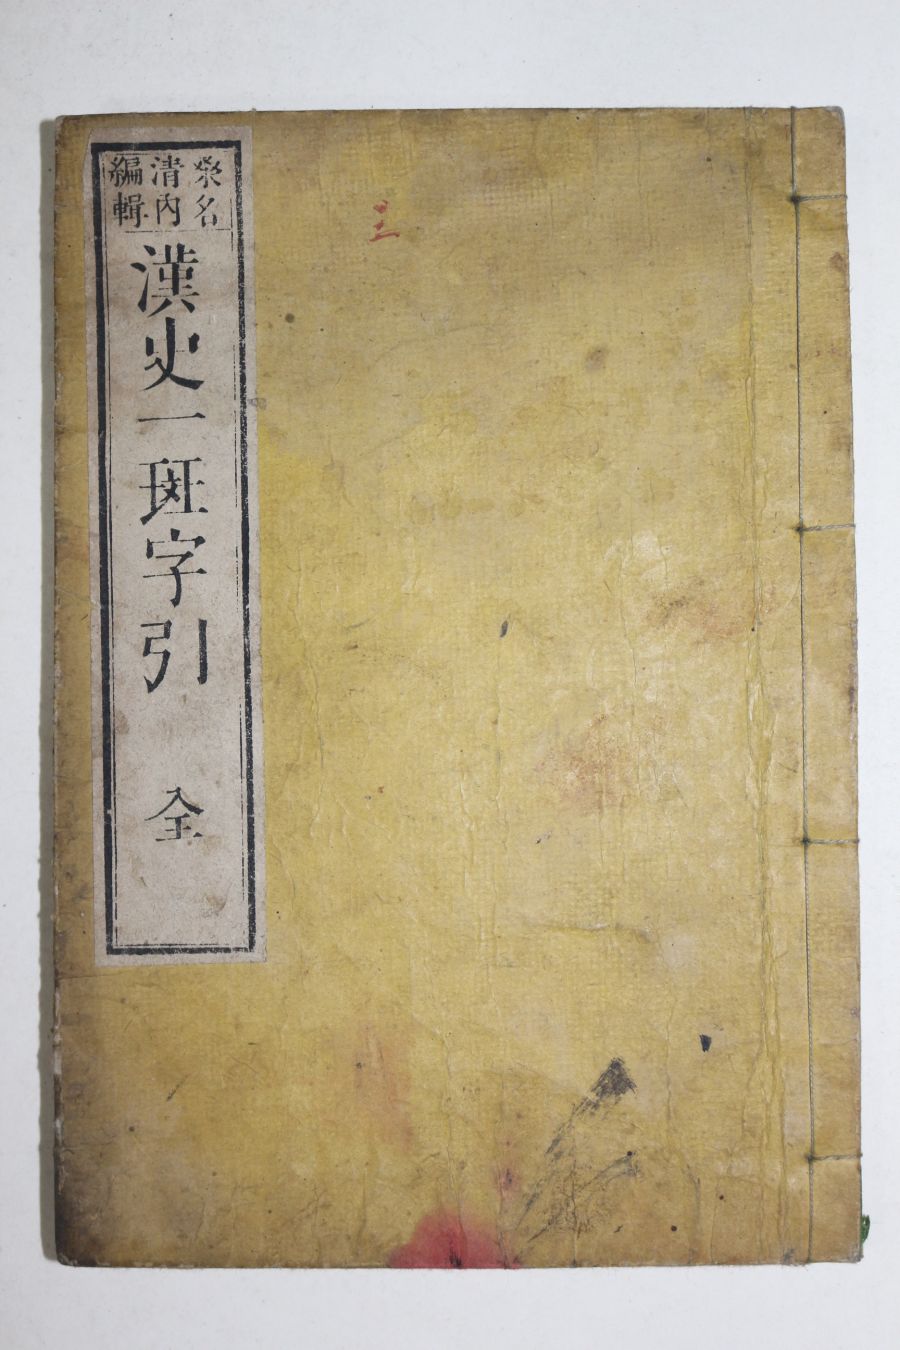 桒名
清内
編輯
漢史一斑字引 全
三